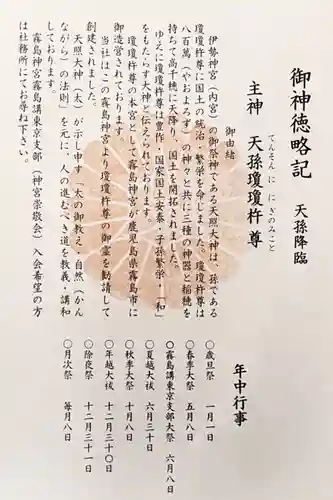 御神徳略記　天孫降臨
主神　天孫瓊瓊杵尊
てんそん に にぎのみこと
御由緒
伊勢神宮（内宮）の御祭神である天照大神は、孫である
瓊瓊杵尊に国土の統治、繁栄を命じました。瓊瓊杵尊は
八百萬（やおよろず）の神々と共に三種の神器と稲穂を
持ちて高千穂に天降り、国土を開拓されました。
ゆえに瓊瓊杵尊は豊作・国家国土安泰・子孫繁栄・「和」
をもたらす大神と伝えられております。
瓊瓊杵尊の本宮として霧島神宮が鹿児島県霧島市に
御造営されております。
当社はこの霧島神宮より瓊瓊杵尊の御霊を勧請して
創建されました。
天照大神（太）が示し申す、太の御教え・自然（かん
ながら）の法則」を元に、人の進むべき道を教義・講和
しております。
霧島神宮霧島講東京支部（神宮崇敬会）入会希望の方
は社務所にてお尋ね下さい。
年中行事
○歳旦祭　一月一日
○春季大祭　五月八日
○霧島講東京支部大祭　六月八日
○夏越大祓　六月三十日
○秋季大祭　十月八日
○年越大祓　十二月三十〇日
○除夜祭　十二月三十一日
○月次祭　毎月八日